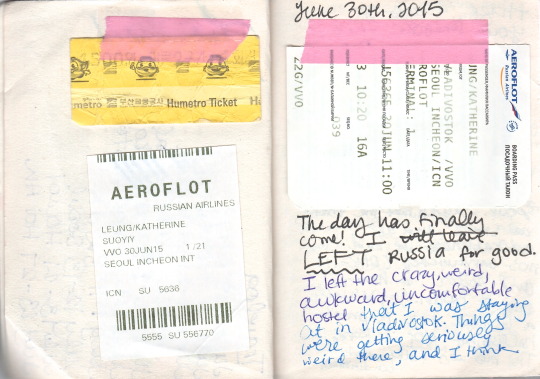 Humetro
부산교통공사 Humetro Ticket
AEROFLOT
RUSSIAN AIRLINES
LEUNG/KATHERINE
SUOYIY
VVO 30JUN15 1/21
SEOUL INCHEON INT
ICN SU 5636
5555 SU 556770
June 30th, 2015
AEROFLOT
Russian Airlines
BOARDING PASS
ПОСАДОЧНЫЙ ТАЛОН
UNG/KATHERINE
VLADIVOSTOK /VVO
SEOUL INCHEON/ICN
ROFLOT
TERMINAL:
SU5636 30JUN 11:00
3 10:20 16A
039
22G/VVO
The day has finally
come! I will leave
LEFT Russia for good.
I left the crazy, weird,
awkward, uncomfortable
hostel that I was staying
at in Vladivostok. Things
were getting seriously
weird there, and I think